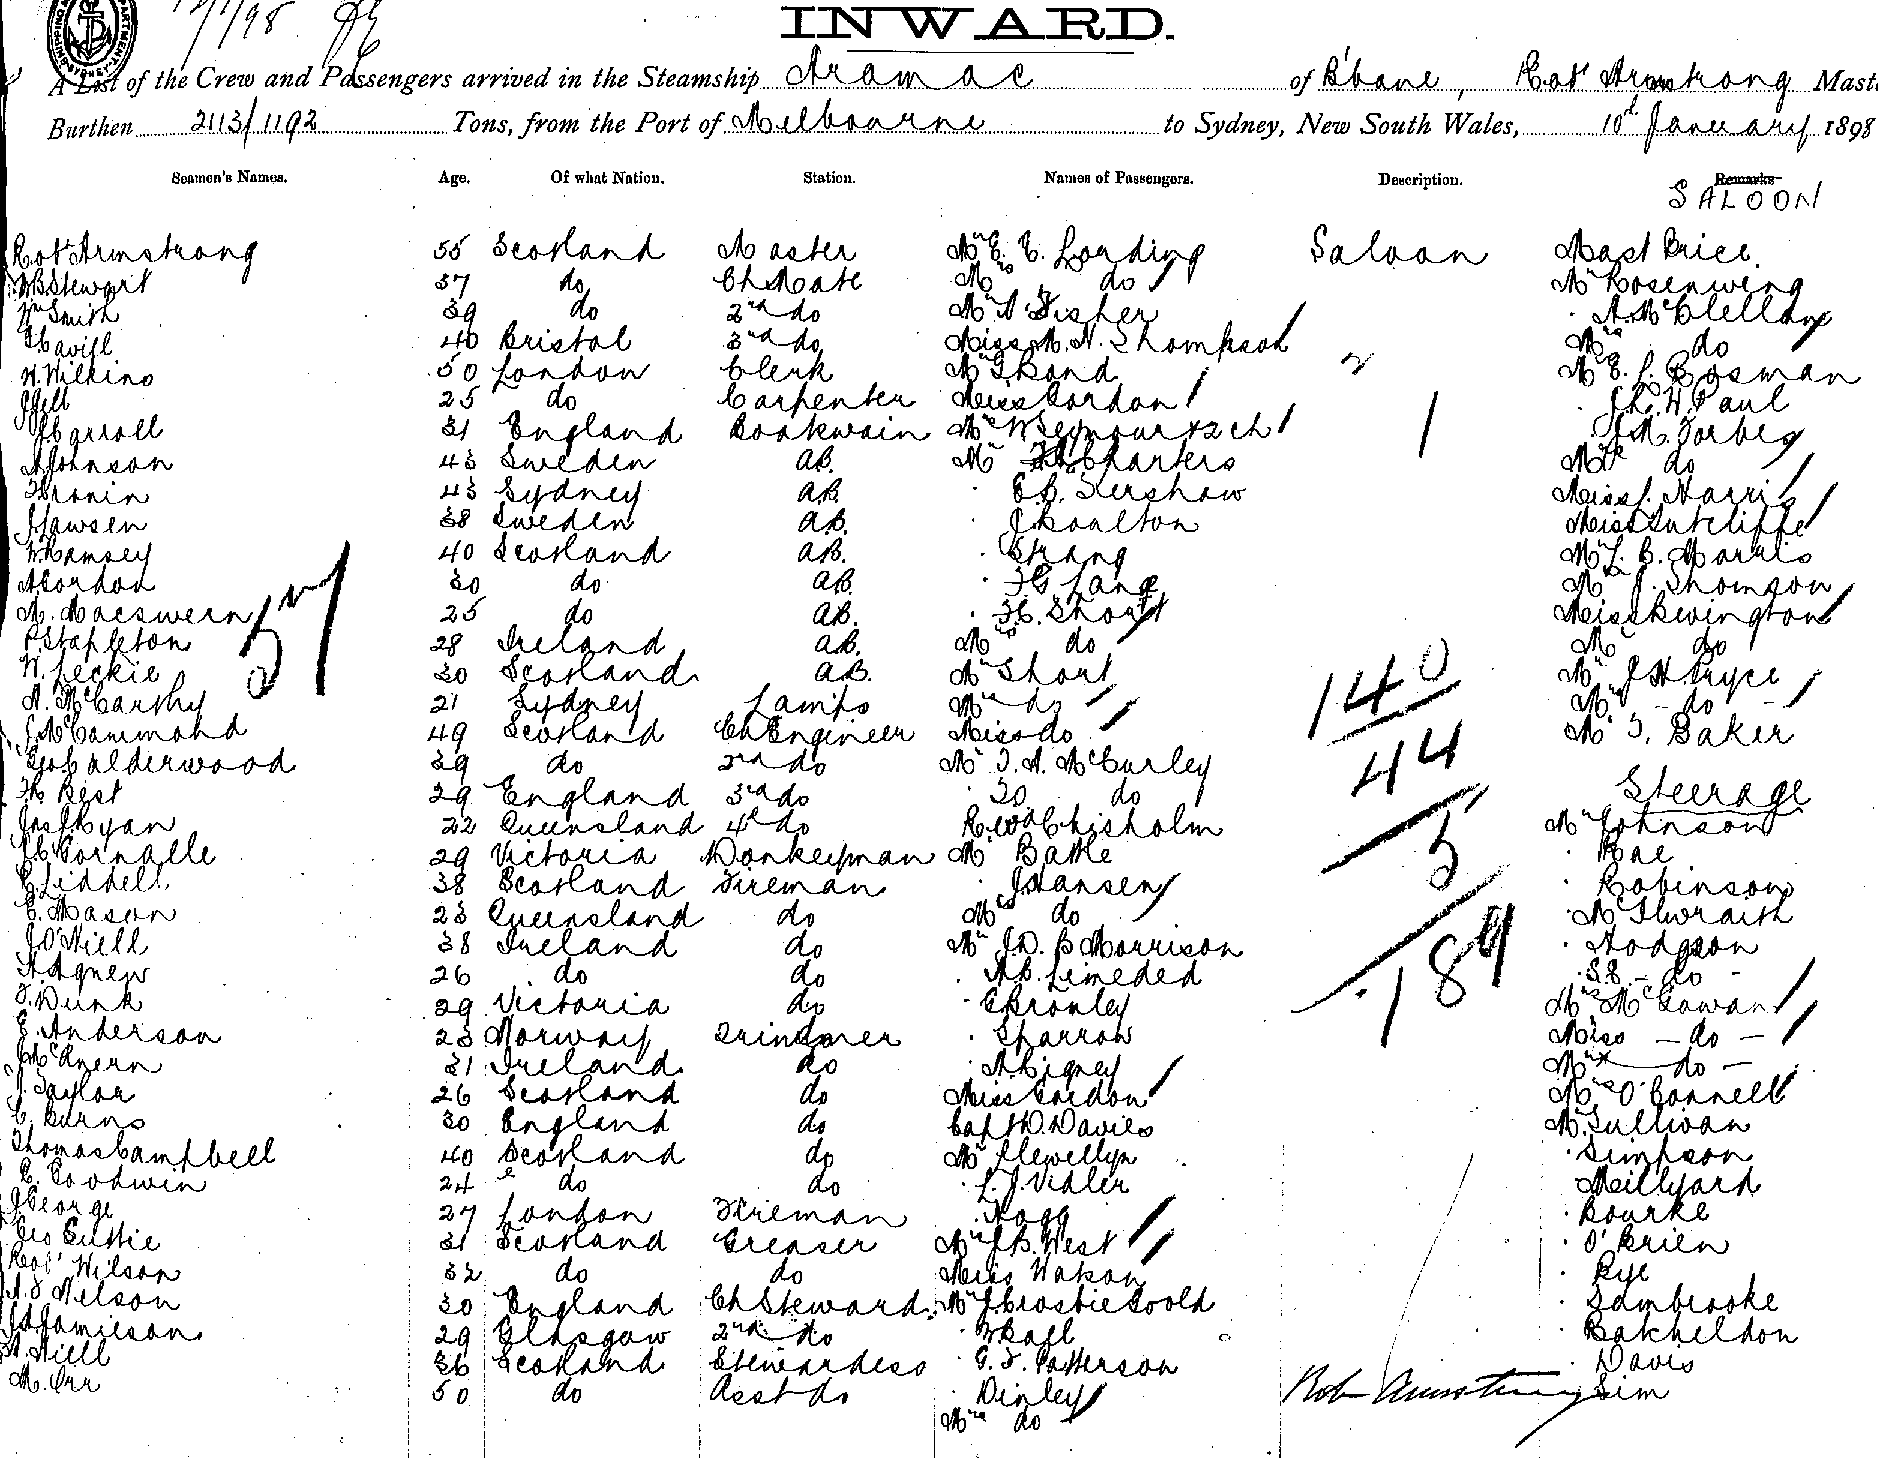 12/1/98
INWARD.
A List of the Crew and Passengers arrived in the Steamship Aramac of B'bane, Robt Armstrong Master
Burthen 2113/1192 Tons, from the Port of Melbourne to Sydney, New South Wales, 10th January 1898
Seamen's Names. Age. Of what Nation. Station. Names of Passengers. Description. Remarks
SALOON
Robt Armstrong 55 Scotland Master Mr E. E. Lording Saloon Mast Brice
W B Stewart 37 do Ch Mate Mrs do Mr Rosenwing
Wm Smith 39 do 2nd do Mr A Fisher A. McClelland
Cavill 40 Bristol 3rd do Miss M. N. Thompson Mrs do
W. Wilkins 50 London Clerk Mr G Bond Mr E. L. Cosman
J Gell 25 do Carpenter Miss Gordon J L. W. Paul
J Carroll 31 England Boatswain Mrs W Seymour & 2 ch 1 J. M. Forbes
A Johnson 43 Sweden AB. Mr Charters Mrs do
Cronin 43 Sydney AB. E B. Kershaw Miss J. Harris
J Lawsen 38 Sweden AB. J Boulton Miss Sutcliffe
W Ramsey 40 Scotland AB. Strang Mr L. B. Morris
A Gordon 30 do AB. F G Lang Mr J. Thomson
A. Macswern 25 do AB. F C. Short Miss Bevington
P Stapleton 28 Ireland AB. Mrs do Mr do
W. Leckie 30 Scotland AB. Mr Short Mr J H Bryce
A. McCarthy 21 Sydney Lamps Mrs do Mrs do
57
140
J McCammond 49 Scotland Ch Engineer Miss do Mr T. Baker
Geo Calderwood 39 do 2nd do Mr T. A. McCurley
44
H Best 29 England 3rd do do Steerage
Jas J Ryan 22 Queensland 4th do Revd Chisholm Mr Johnson
J C Cornalle 29 Victoria Donkeyman Mr Battle Rae
5
C Liddell 38 Scotland Fireman J Hansen Robinson
C. Mason 23 Queensland do Mrs do McIlwraith
J O'Niell 38 Ireland do Mr J. D. B Morrison Hodgson
189
A Agnew 26 do do A B. Limeded do
Dunk 29 Victoria do C Bromley Mrs McGowan
E. Anderson 23 Norway Trimmer Sharron Miss do
J McAvern 31 Ireland do A Bigney do
J. Taylor 26 Scotland do Miss Gordon Mrs O'Connell
C. Burns 30 England do Capt D. Davies Mr Sullivan
Thomas Campbell 40 Scotland do Mr Llewellyn Simpson
C. Goodwin 24 do do L. J. Vidler Millyard
J George 27 London Fireman Hogg Bourke
Geo Guttie 31 Scotland Greaser Mrs J B. West O'Brien
Robt Wilson 32 do do Miss Watson Rye
A. S Nelson 30 England Ch Steward Mr J Crosbie Goold Sambrooke
J A Jamieson 29 Glasgow 2nd do W Ball Batcheldon
A. Niell 36 Scotland Stewardess G. S. Patterson Davis
M. Orr 50 do Asst do Dinley Sim
Robt Armstrong
Mrs do